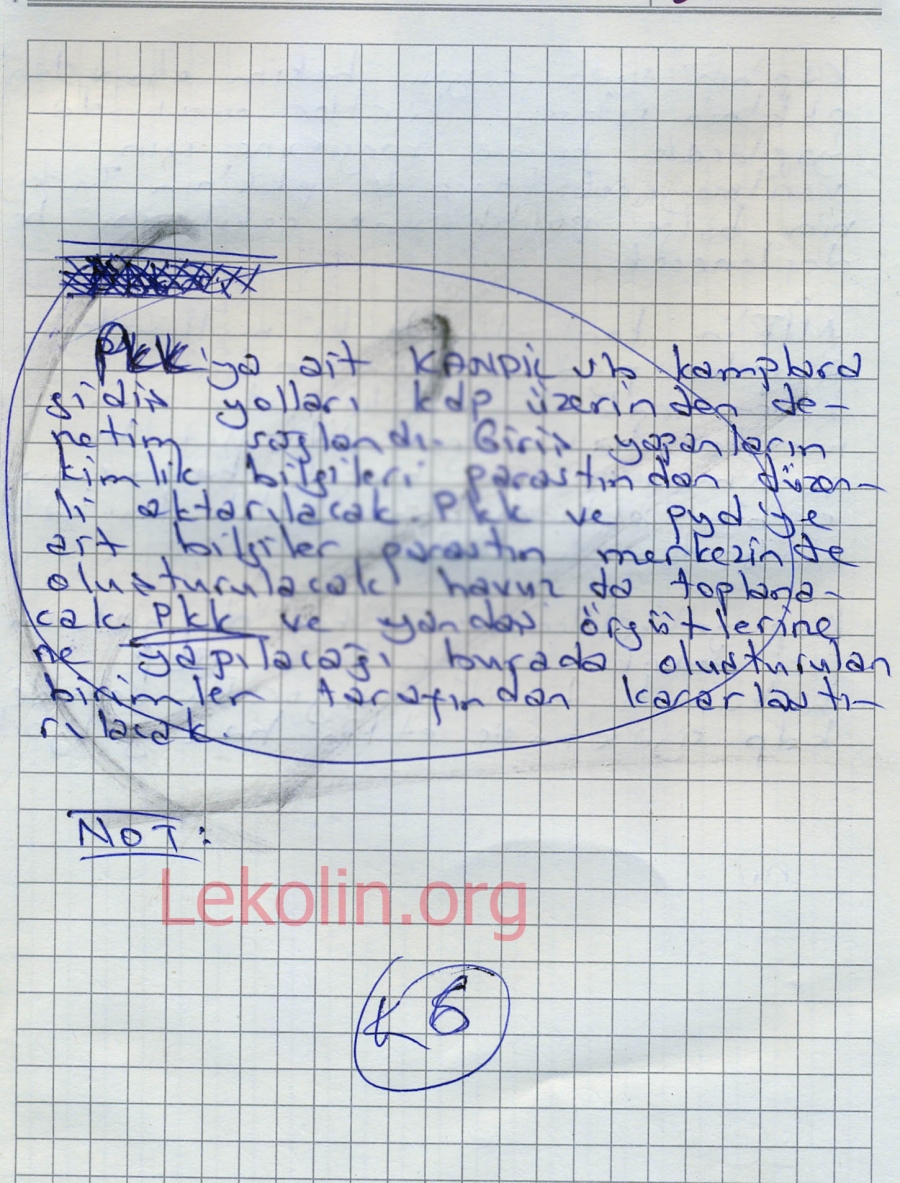 Pkk'ya ait KANDİL vb kamplara
gidiş yolları kdp üzerinden de-
netim sağlandı. Giriş yapanların
kimlik bilgileri parastından düzen-
li aktarılacak. Pkk ve pyd'ye
ait bilgiler parastın merkezinde
oluşturulacak havuzda toplana-
cak. Pkk ve yandaş örgütlerine
ne yapılacağı burada oluşturulan
birimler tarafından kararlaştı-
rılacak.
NOT:
Lekolin.org
K6